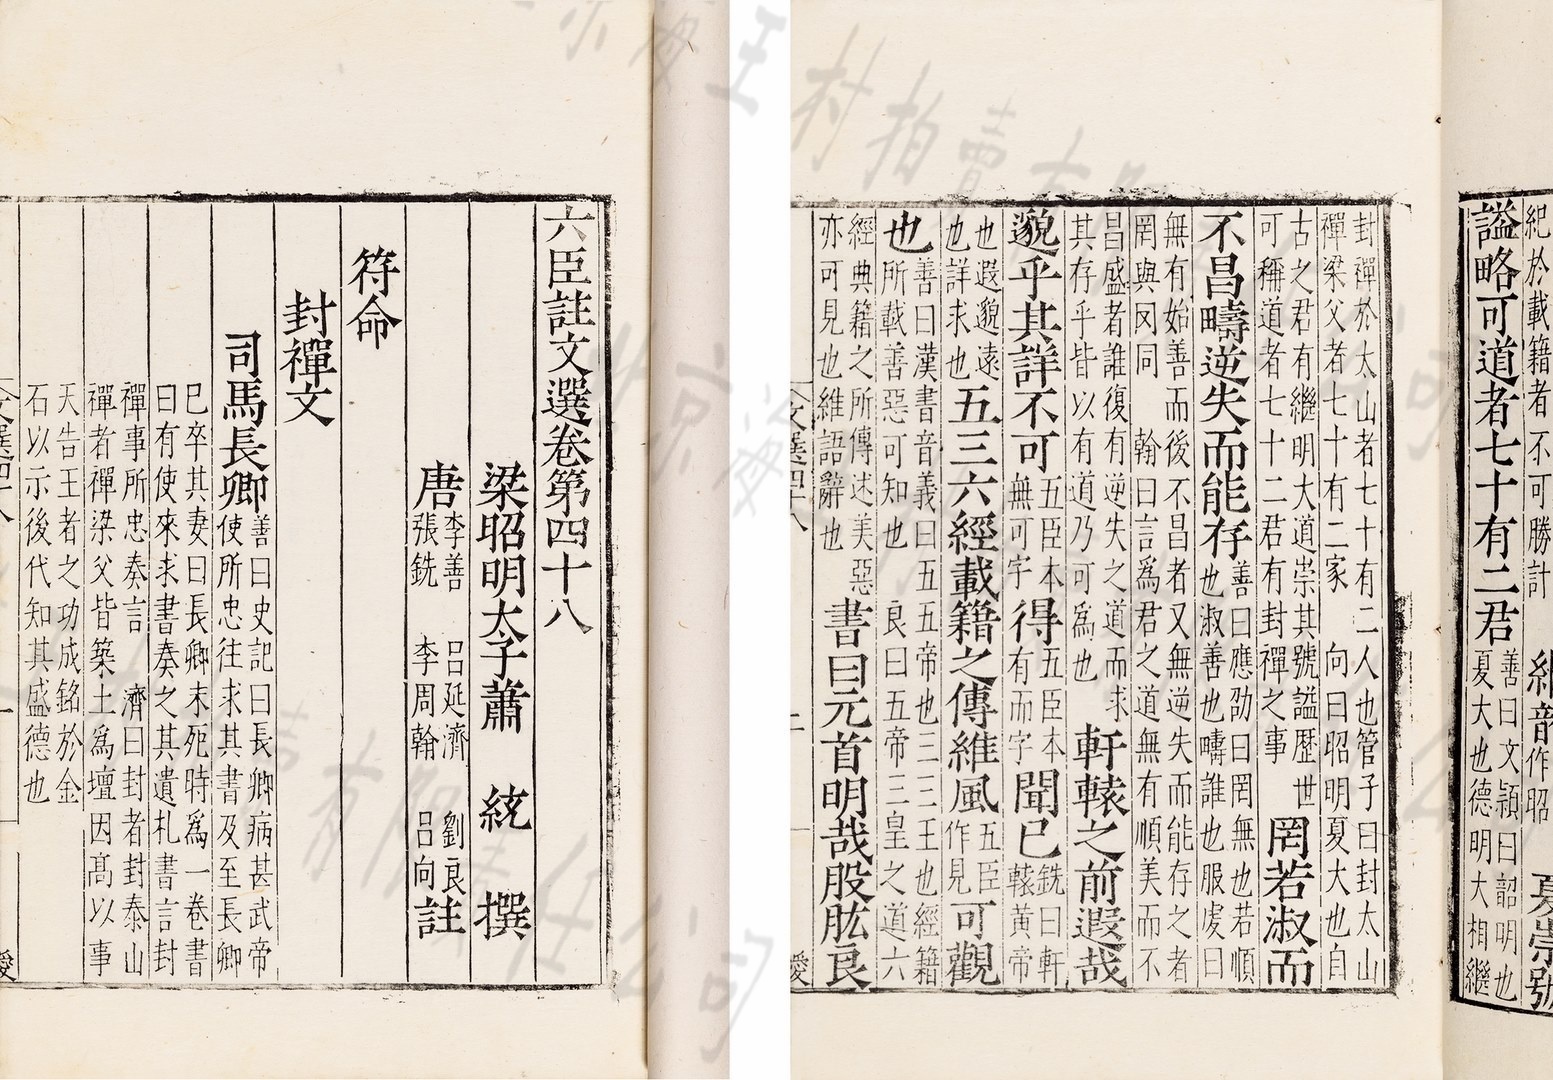 六臣註文選卷第四十八
梁昭明太子蕭 統 撰
唐
李善 呂延濟 劉良
張銑 李周翰 呂向
註
符命
封禪文
司馬長卿
善曰史記曰長卿病甚武帝
使所忠往求其書及至長卿
已卒其妻曰長卿未死時爲一卷書
曰有使來求書奏之其遺札書言封
禪事所忠奏言 濟曰封者封泰山
禪者禪梁父皆築土爲壇因髙以事
天告王者之功成銘於金
石以示後代知其盛德也
文選四十八 一
紀於載籍者不可勝計 繼韶
作昭
夏崇號
謚略可道者七十有二君
善曰文頴曰韶明也
夏大也德明大相繼
封禪於太山者七十有二人也管子曰封太山
禪梁父者七十有二家 向曰昭明夏大也自
古之君有繼明大道崇其號謚歷世
可稱道者七十二君有封禪之事
罔若淑而
不昌疇逆失而能存
善曰應劭曰罔無也若順
也淑善也疇誰也服虔曰
無有始善而後不昌者又無逆失而能存之者
罔與冈同 翰曰言爲君之道無有順美而不
昌盛者誰復有逆失之道而求
其存乎皆以有道乃可爲也
軒轅之前遐哉
邈乎其詳不可
五臣本
無可字
得
五臣本
有而字
聞已
銑曰軒
轅黃帝
也遐邈遠
也詳求也
五三六經載籍之傳維風
五臣
作見
可觀
也
善曰漢書音義曰五五帝也三三王也經籍
所載善惡可知也 良曰五帝三皇之道六
經典籍之所傳述美惡
亦可見也維語辭也
書曰元首明哉股肱良
文選四十八 二
北京海王村拍賣有限責任公司